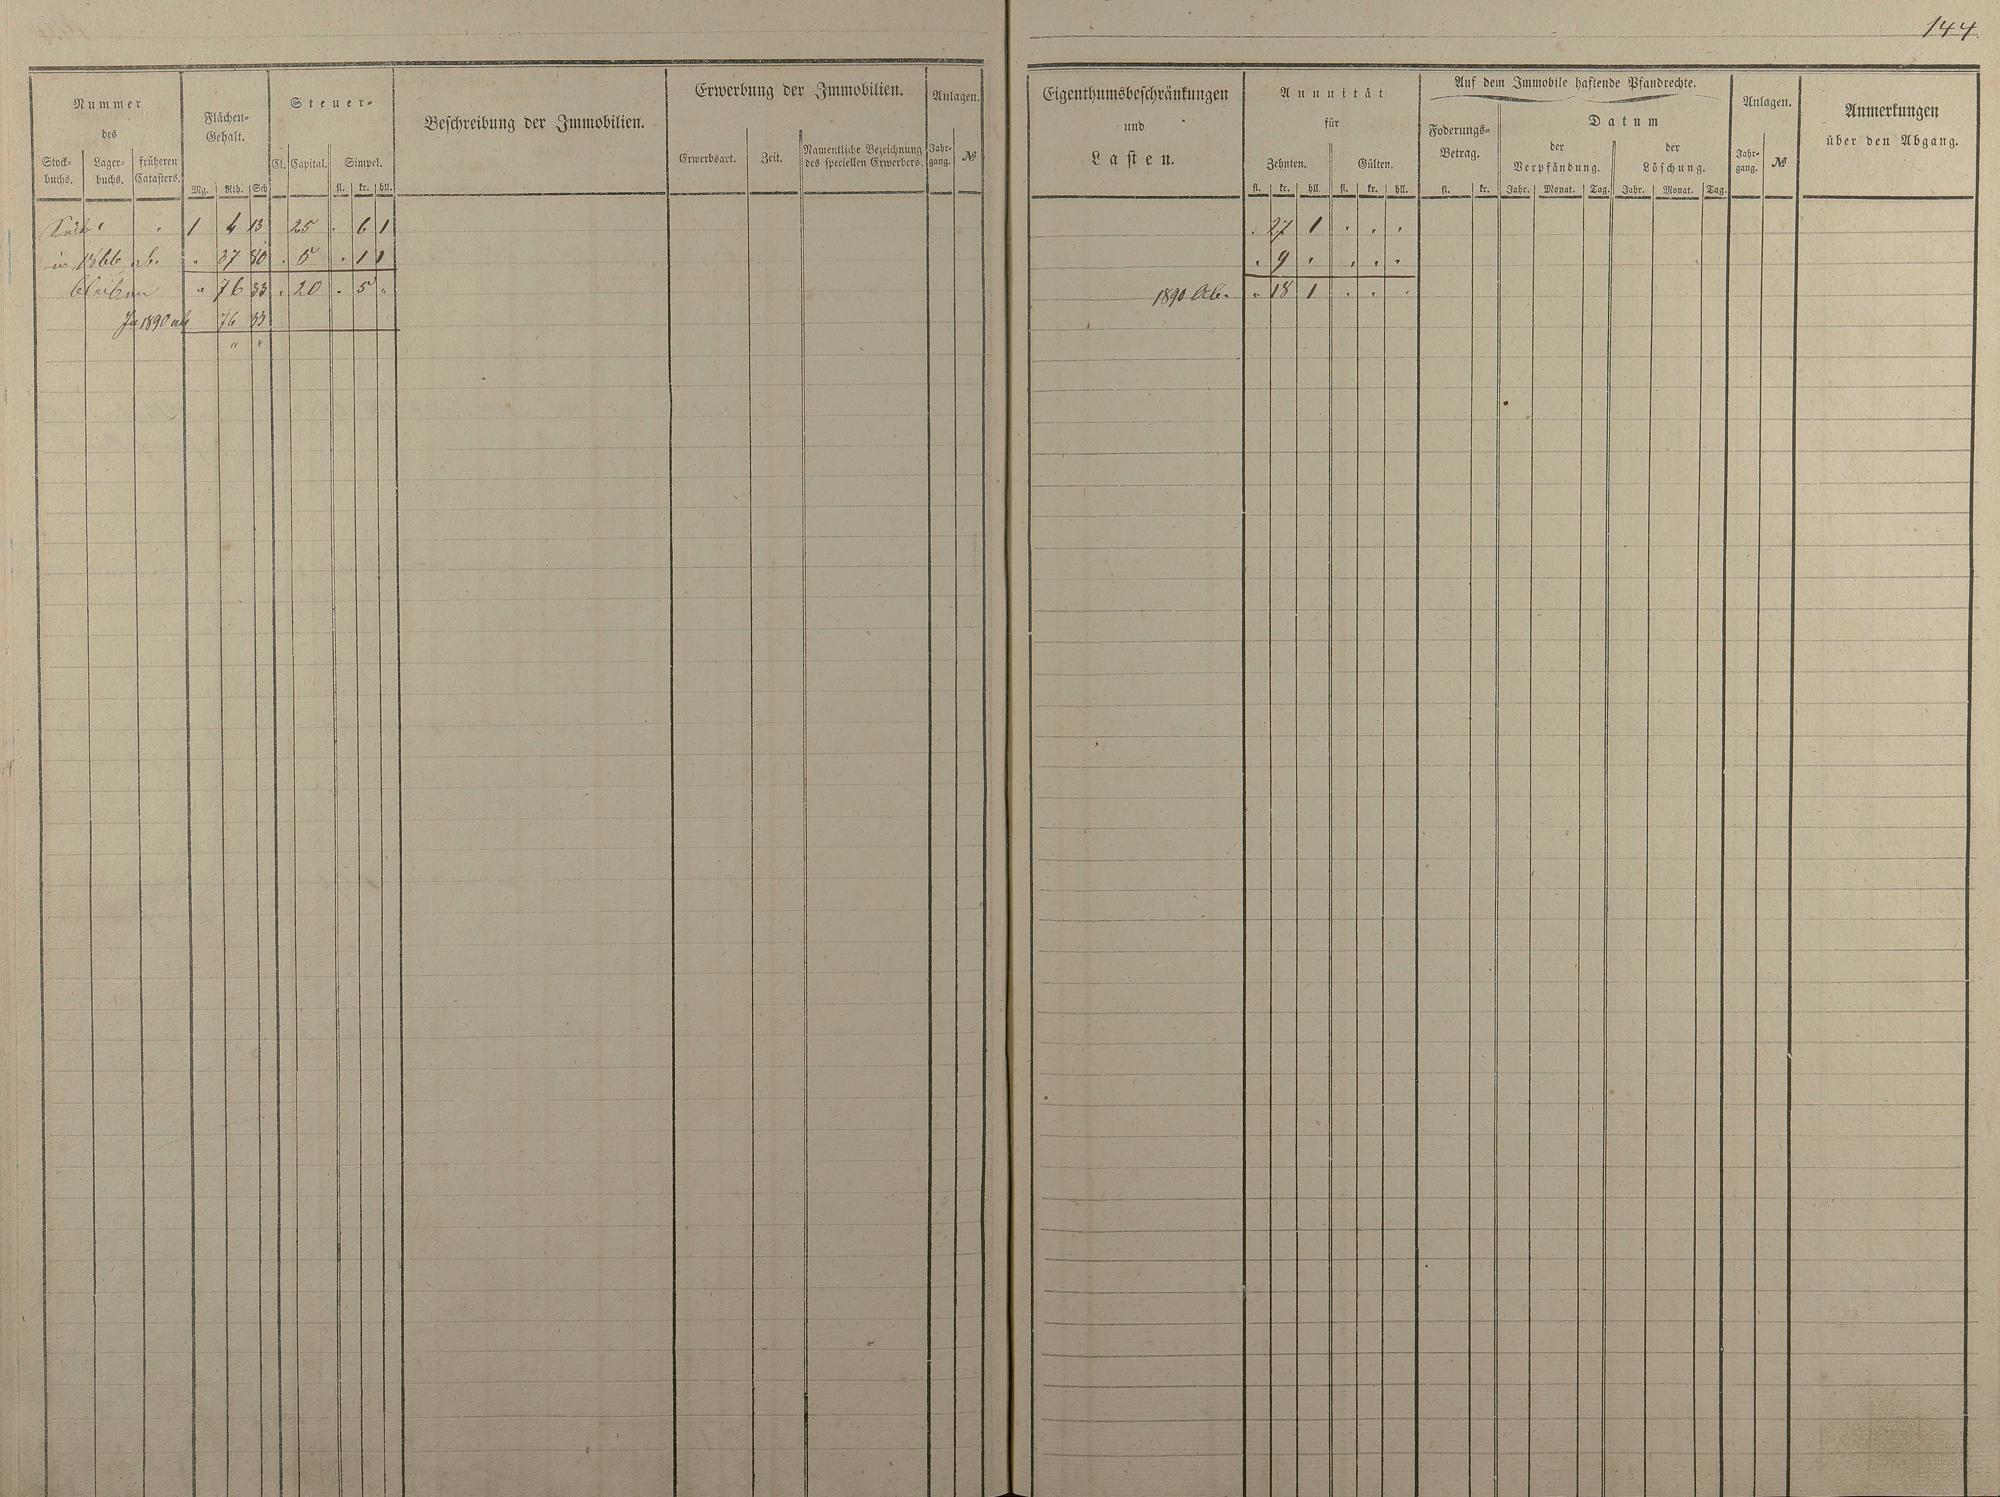 144.
Nummer
des
Stock-
buchs.
Lager-
buchs.
früheren
Catasters.
Flächen-
Gehalt.
Mg. Rth. Sch
Steuer-
Cl. Capital. Simpel.
fl. kr. hll.
Beschreibung der Immobilien.
Erwerbung der Immobilien.
Erwerbsart. Zeit.
Namentliche Bezeichnung
des speciellen Erwerbers.
Anlagen.
Jahr-
gang.
№
1 4 13 25 . 6 1
in 1866 ab. " 37 80 . 5 . 1 1
bleiben " 76 33 . 20 . 5 "
In 1890 ab 76 33
" "
Eigenthumsbeschränkungen
und
Lasten.
Annuität
für
Zehnten. Gülten.
fl. kr. hll. fl. kr. hll.
Auf dem Immobile haftende Pfandrechte.
Foderungs-
Betrag.
fl. kr.
Datum
der
Verpfändung.
Jahr. Monat. Tag.
der
Löschung.
Jahr. Monat. Tag.
Anlagen.
Jahr-
gang.
№
Anmerkungen
über den Abgang.
. 27 1 . . .
. 9 . . . .
1890 Ab. " 18 1 . . .